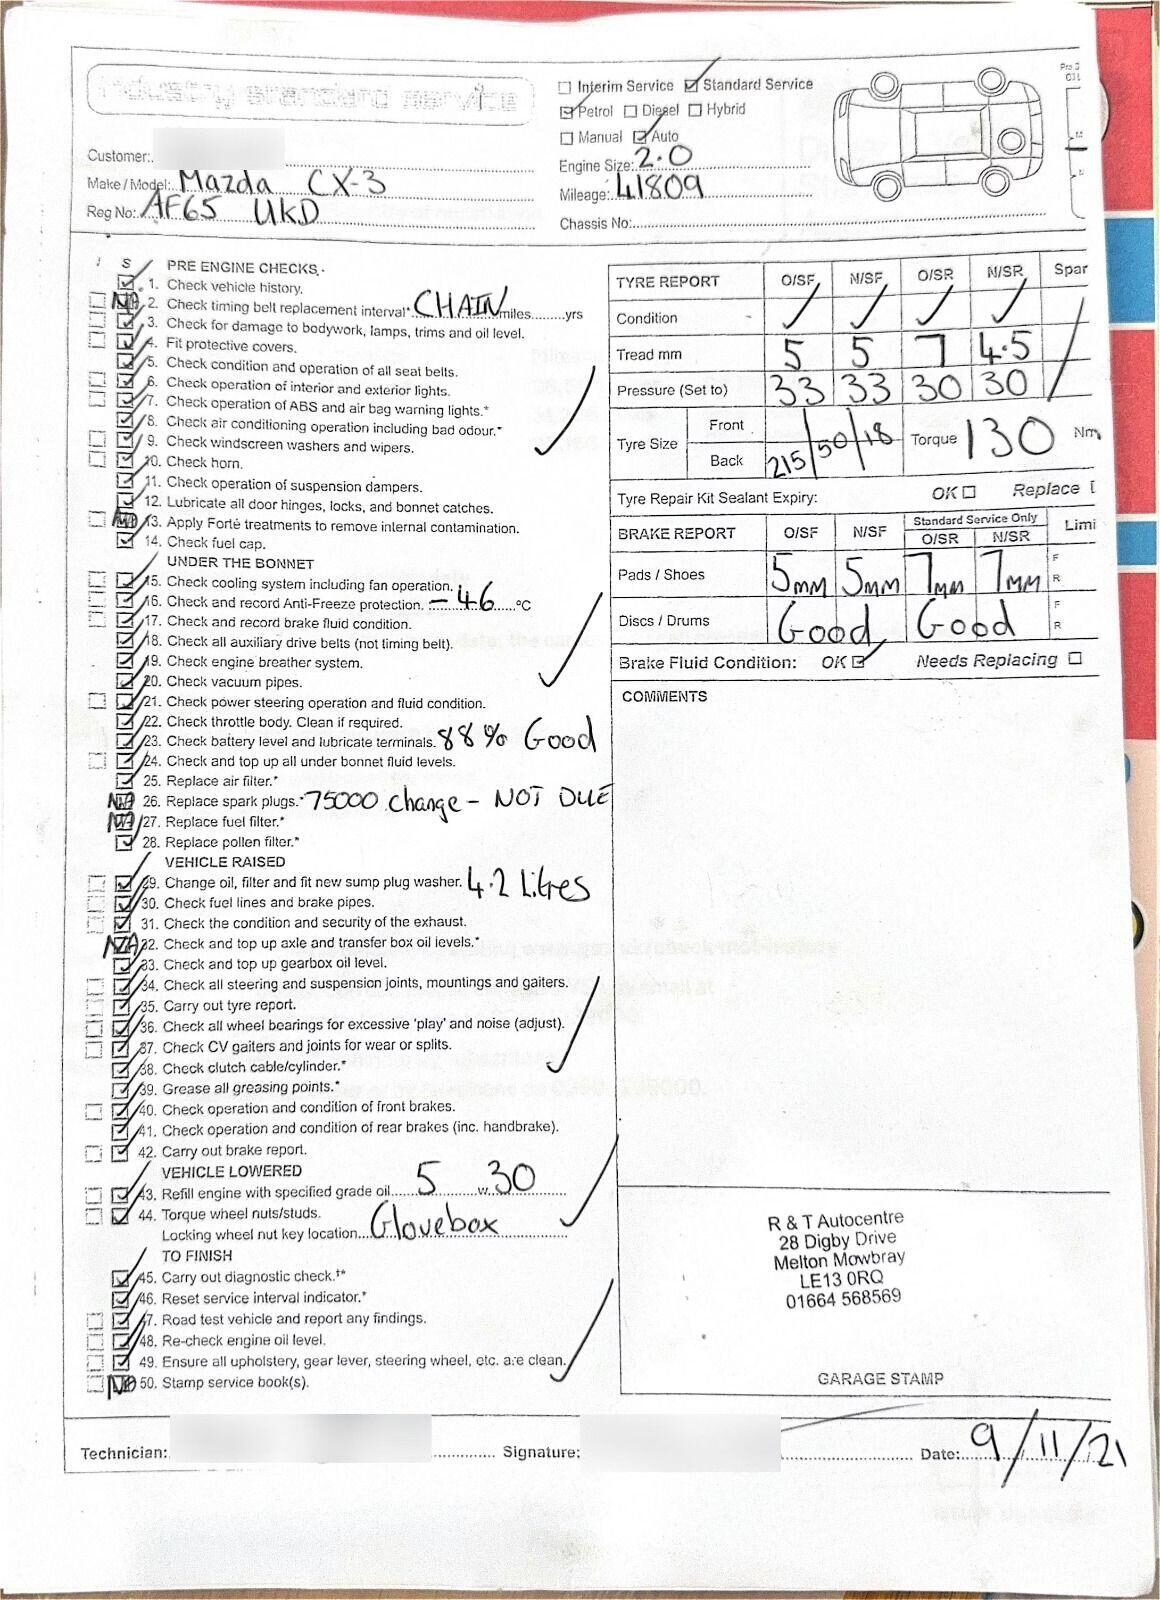 industry standard service
Interim Service Standard Service
Petrol Diesel Hybrid
Manual Auto
Customer:
Engine Size: 2.0
Make / Model: Mazda CX-3
Mileage: 41809
Reg No: AF65 UKD
Chassis No:
S PRE ENGINE CHECKS.
1. Check vehicle history.
NA 2. Check timing belt replacement interval* CHAIN miles yrs
3. Check for damage to bodywork, lamps, trims and oil level.
4. Fit protective covers.
5. Check condition and operation of all seat belts.
6. Check operation of interior and exterior lights.
7. Check operation of ABS and air bag warning lights.*
8. Check air conditioning operation including bad odour.*
9. Check windscreen washers and wipers.
10. Check horn.
11. Check operation of suspension dampers.
12. Lubricate all door hinges, locks, and bonnet catches.
13. Apply Forté treatments to remove internal contamination.
14. Check fuel cap.
UNDER THE BONNET
15. Check cooling system including fan operation.
16. Check and record Anti-Freeze protection. -46 °C
17. Check and record brake fluid condition.
18. Check all auxiliary drive belts (not timing belt).
19. Check engine breather system.
20. Check vacuum pipes.
21. Check power steering operation and fluid condition.
22. Check throttle body. Clean if required.
23. Check battery level and lubricate terminals. 88% Good
24. Check and top up all under bonnet fluid levels.
25. Replace air filter.*
NA 26. Replace spark plugs.* 75000 change - NOT DUE
NA 27. Replace fuel filter.*
28. Replace pollen filter.*
VEHICLE RAISED
29. Change oil, filter and fit new sump plug washer. 4.2 Litres
30. Check fuel lines and brake pipes.
31. Check the condition and security of the exhaust.
N/A 32. Check and top up axle and transfer box oil levels.*
33. Check and top up gearbox oil level.
34. Check all steering and suspension joints, mountings and gaiters.
35. Carry out tyre report.
36. Check all wheel bearings for excessive 'play' and noise (adjust).
37. Check CV gaiters and joints for wear or splits.
38. Check clutch cable/cylinder.*
39. Grease all greasing points.*
40. Check operation and condition of front brakes.
41. Check operation and condition of rear brakes (inc. handbrake).
42. Carry out brake report.
VEHICLE LOWERED
43. Refill engine with specified grade oil 5 w 30
44. Torque wheel nuts/studs.
Locking wheel nut key location Glovebox
TO FINISH
45. Carry out diagnostic check.†*
46. Reset service interval indicator.*
47. Road test vehicle and report any findings.
48. Re-check engine oil level.
49. Ensure all upholstery, gear lever, steering wheel, etc. are clean.
NA 50. Stamp service book(s).
TYRE REPORT O/SF N/SF O/SR N/SR Spar
Condition
Tread mm 5 5 7 4.5
Pressure (Set to) 33 33 30 30
Tyre Size Front Back 215/50/18 Torque 130 Nm
Tyre Repair Kit Sealant Expiry: OK Replace
BRAKE REPORT O/SF N/SF Standard Service Only Limi
O/SR N/SR
Pads / Shoes 5mm 5mm 7mm 7mm F R
Discs / Drums Good Good F R
Brake Fluid Condition: OK Needs Replacing
COMMENTS
R & T Autocentre
28 Digby Drive
Melton Mowbray
LE13 0RQ
01664 568569
GARAGE STAMP
Technician: Signature: Date: 9/11/21